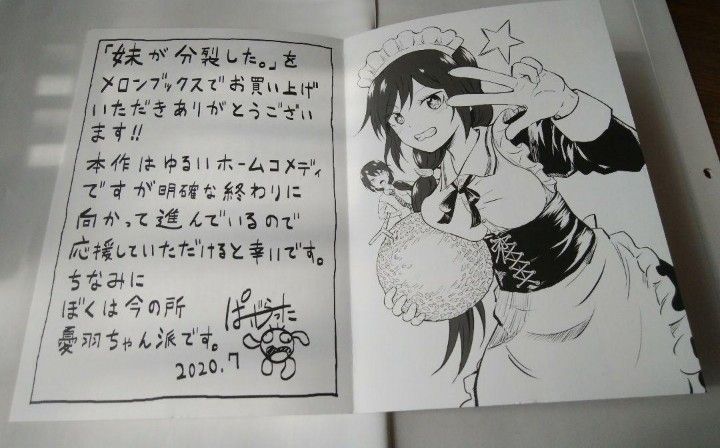 「妹が分裂した。」を
メロンブックスでお買い上げ
いただきありがとうござい
ます!!
本作はゆるいホームコメディ
ですが明確な終わりに
向かって進んでいるので
応援していただけると幸いです。
ちなみに
ぼくは今の所
憂羽ちゃん派です。
2020.7